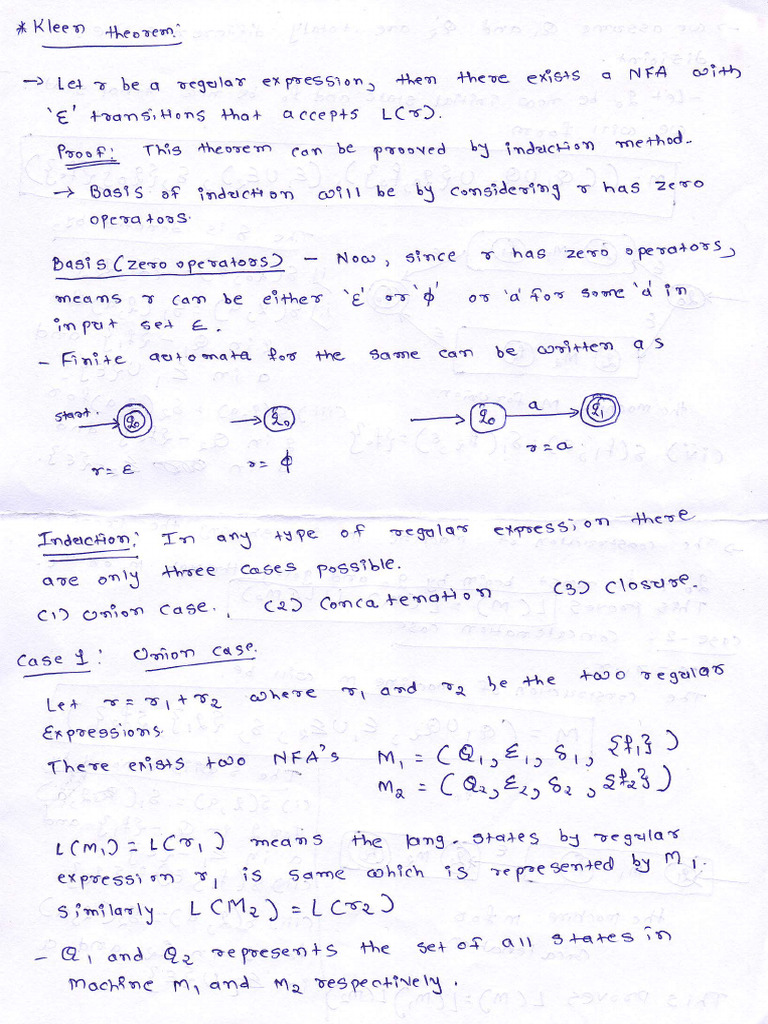 * Kleen theorem:
→ Let r be a regular expression, then there exists a NFA with
'ε' transitions that accepts L(r).
Proof: This theorem can be prooved by induction method.
→ Basis of induction will be by considering r has zero
operators.
Basis (zero operators) - Now, since r has zero operators,
means r can be either 'ε' or 'ϕ' or 'a' for some 'a' in
input set ε.
- Finite automata for the same can be written as
start. q0 q0 q0 a q1
r= ε r= ϕ r=a
Induction: In any type of regular expression there
are only three cases possible.
(1) Union case. (2) Concatenation (3) Closure.
Case 1: Union case.
Let r = r1 + r2 where r1 and r2 be the two regular
Expressions.
There exists two NFA's M1 = (Q1, Ε1, δ1, {f1})
M2 = (Q2, Ε2, δ2, {f2})
L(M1) = L(r1) means the lang. states by regular
expression r1 is same which is represented by M1.
Similarly L(M2) = L(r2)
- Q1 and Q2 represents the set of all states in
machine M1 and M2 respectively.